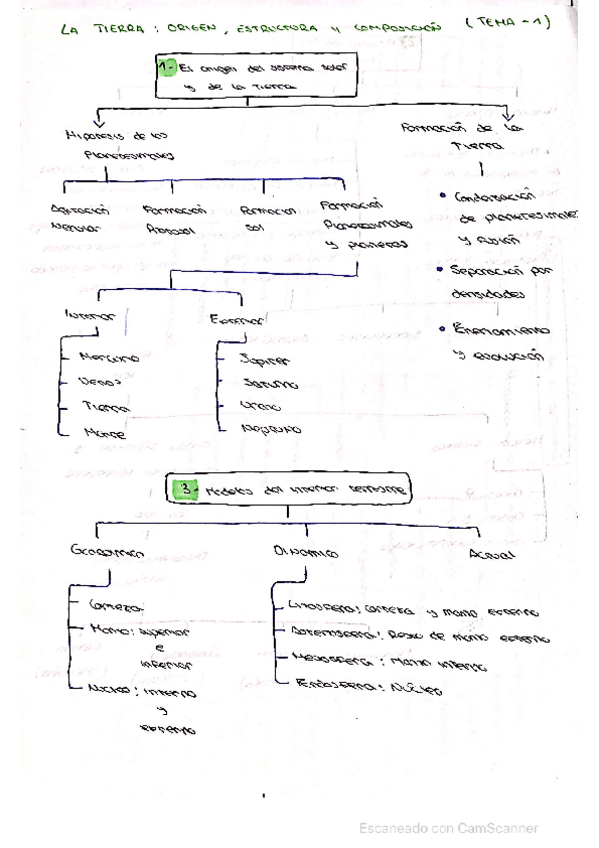 LA TIERRA: ORIGEN, ESTRUCTURA Y COMPOSICIÓN (TEMA-1)
1- El origen del sistema solar
y de la Tierra
Hipótesis de los
Planetesimales
Formación de la
Tierra
Agitación
Nebular
Formación
Protosol
Formación
Sol
Formación
Planetesimales
y planetas
• Condensación
de planetesimales
y fusión
• Separación por
densidades
• Enfriamiento
y evolución
Interior
Mercurio
Venus
Tierra
Marte
Exterior
Júpiter
Saturno
Urano
Neptuno
3- Modelos del interior terrestre
Geoquímico
Dinámico
Actual
Corteza
Manto: superior
e
inferior
Núcleo: interno
y
externo
Litosfera: corteza y manto externo
Astenosfera: Resto de manto externo
Mesosfera: Manto interno
Endosfera: Núcleo
Escaneado con CamScanner